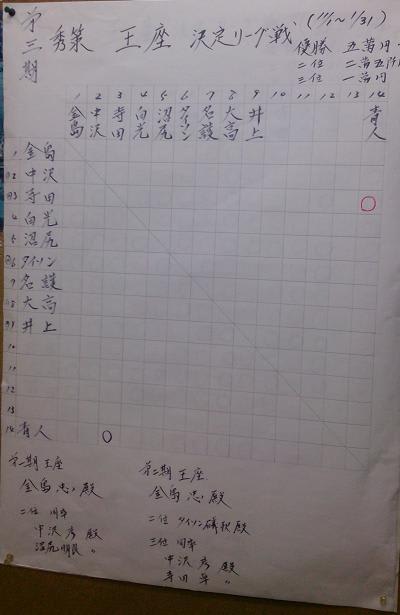 第三期 秀策 王座 決定リーグ戦 (11/1~1/31)
優勝 五萬円
二位 二萬五阡
三位 一萬円
1 2 3 4 5 6 7 8 9 10 11 12 13 14
金島 中沢 寺田 白光 沼尻 タイソン 名護 大高 井上 青人
1 金島
2 中沢
3 寺田
4 白光
5 沼尻
6 タイソン
7 名護
8 大高
9 井上
10
11
12
13
14 青人
第一期王座
金島 忠 殿
二位 同率
中沢 彦 殿
沼尻 明 〃
第二期王座
金島 忠 殿
二位 タイソン 殿
三位 同率
中沢 彦 殿
寺田 〃